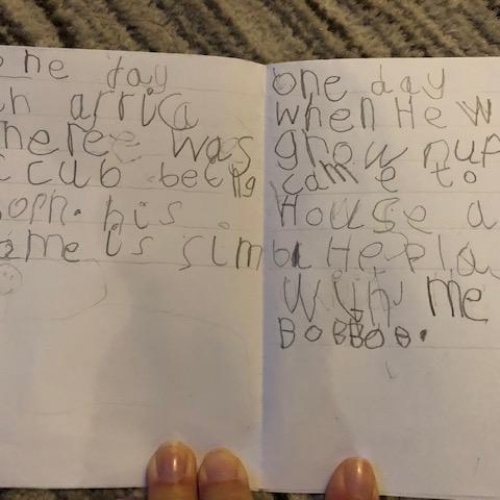 one day
in africa
there was
a cub being
born. his
name is simba
one day
when He w
grow nup
came to
House a
He pla
with me
BoBBoB.